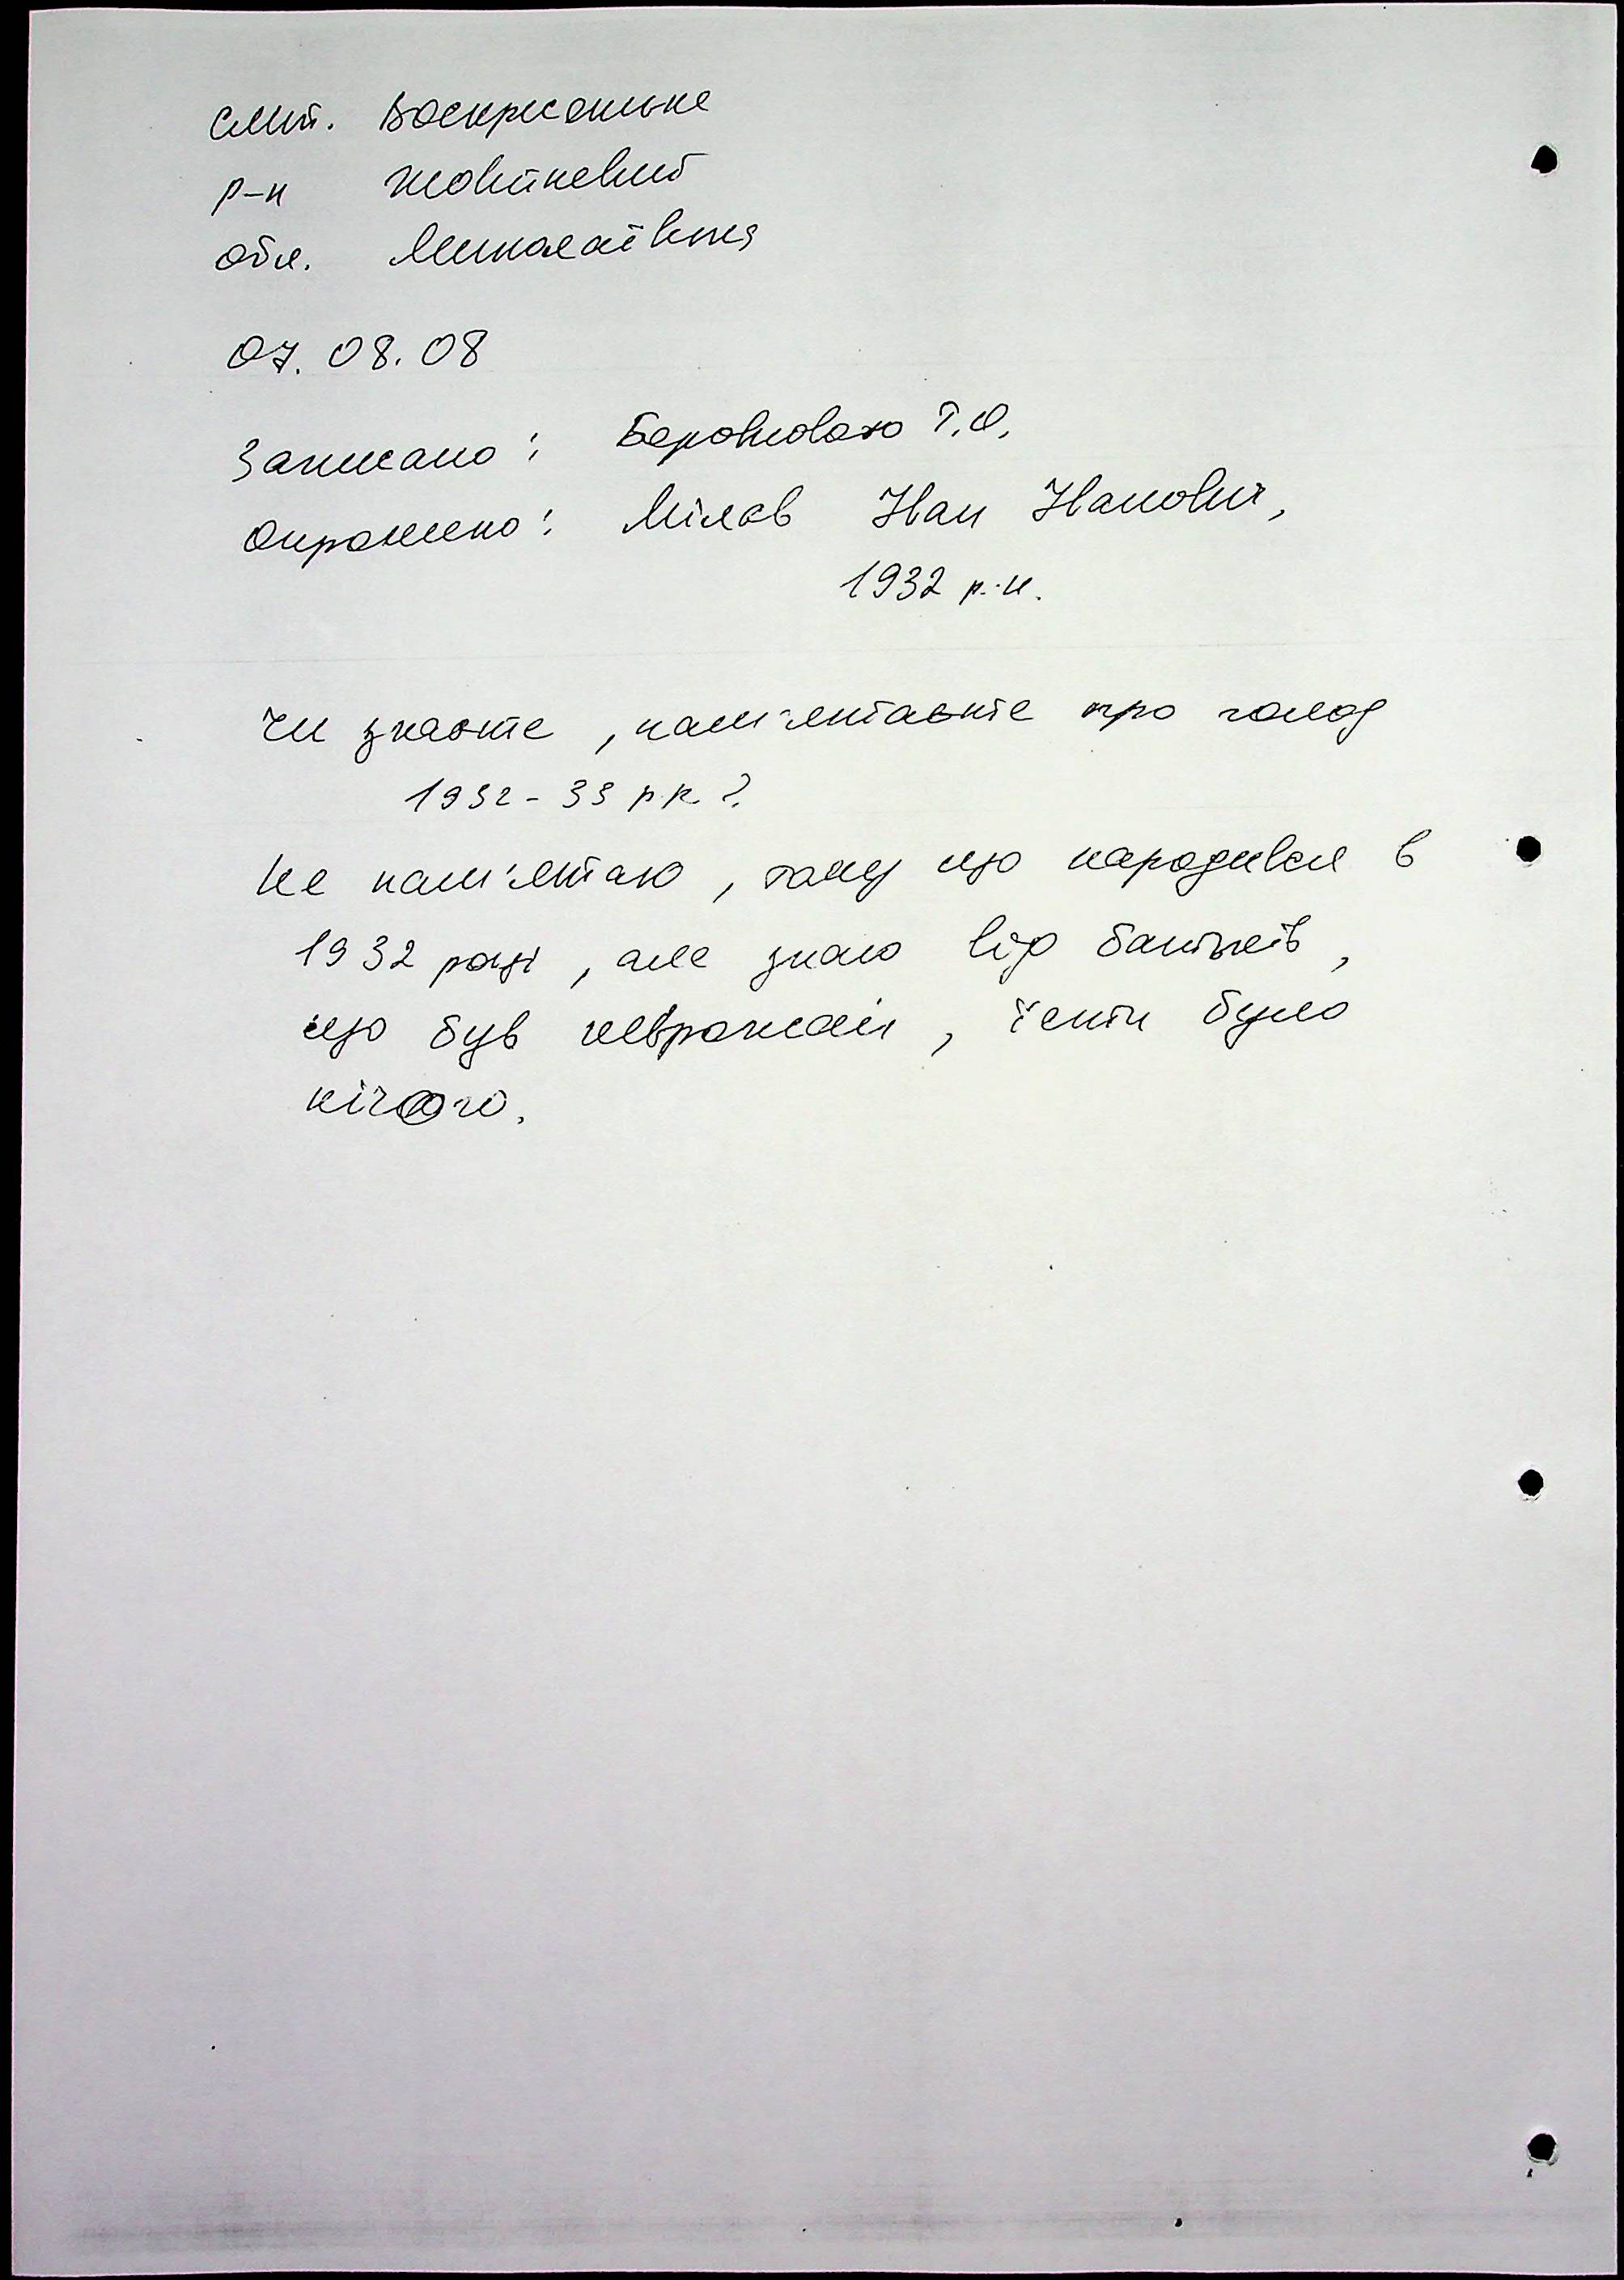 смт. Воскресенське
р-н Жовтневий
обл. Миколаївська
07.08.08
Записано: Т.О.
Опрошено: Мілєв Іван Іванович,
1932 р.н.
Чи знаєте, пам'ятаєте про голод
1932-33 р.р.?
Не пам'ятаю, тому що народився в
1932 році, але знаю від батьків,
що був неврожай, їсти було
нічого.